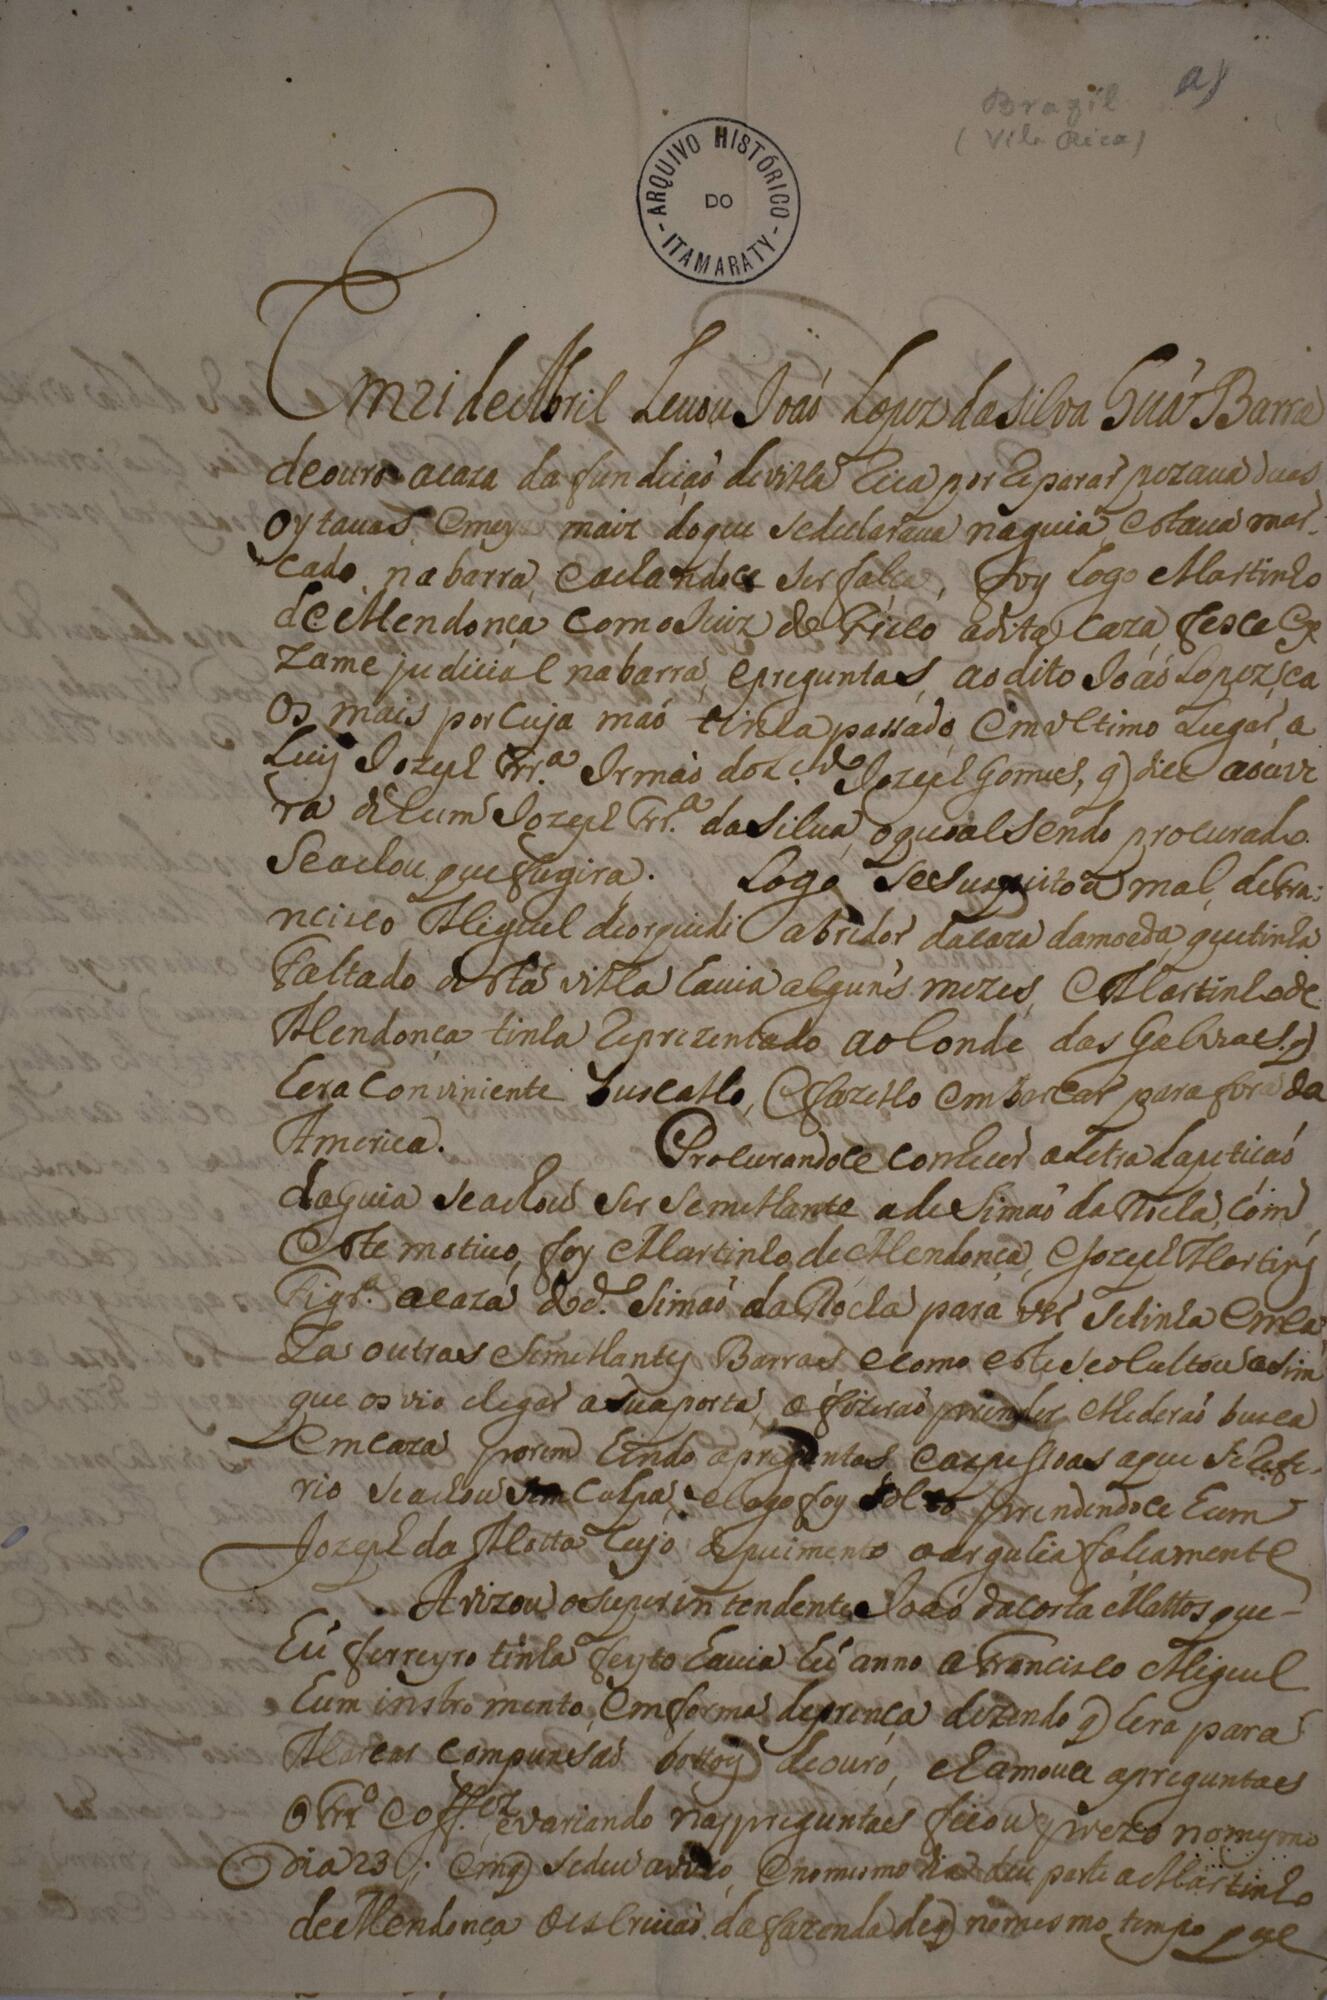 a)
Brazil
(Vila Rica)
ARQUIVO HISTÓRICO
DO
ITAMARATY
Em 21 de Abril Levou João Lopez da Silva hũa Barra
de ouro a caza da fundição de villa Rica por Reparar pezava duas
oytavas, e meya maiz do que se declarava na guia, e estava mar-
cado na barra, e achandoce ser falça, foy logo Martinho
de Mendonça como Juiz de Fisco a dita caza, fes ce Ex
zame judicial na barra, e preguntas ao dito João Lopez, e a
os mais por cuja mão tinha passado, e em ultimo lugar a
Luis Jozeph Frr.ª Irmão do Jozeph Gomes, q dice a ouve
ra de hum Jozeph Frr.ª da Silva, o qual sendo procurado
Se achou que fugira. Logo se suspeitou mal, de Fra:
ncisco Miguel abridor da caza da moeda, que tinha
Faltado desta villa havia alguns mezes, e Martinho de
Mendonça tinha reprezentado ao Conde das Galveas q
hera conviniente buscallo, e fazello embarcar para fora da
America. Procurandoce conhecer a letra da petição
da guia se achou ser semelhante a de Simão da Rocha, com
este motivo, foy Martinho de Mendonça, e Jozeph Martins
Figr.ª a caza do d.º Simão da Rocha para ver se tinha em ca
za outras semelhantes Barras e como este se ocultou asim
que os vio chegar a sua porta, o fizerão prender e lhe derão busca
em caza porem hindo a preguntas e as pessoas a que se Refe-
rio se achou sem culpa, e logo foy solto prendendoce hum
Jozeph da Motta cujo depuimento o arguhia falçamente
Avizou o superintendente João da Costa Mattos que-
hũ ferreyro tinha feyto havia hũ anno a Francisco Miguel
hum instromento, em forma de prença dizendo q hera para
Marcar com punsão botoes de ouro, chamouce a preguntaes
o Frr.º e variando nas preguntaes ficou prezo no mesmo
Dia 23 em q se deu avizo, e no mesmo dia deu parte a Martinho
de Mendonça o escrivão da fazenda de q no mesmo tempo